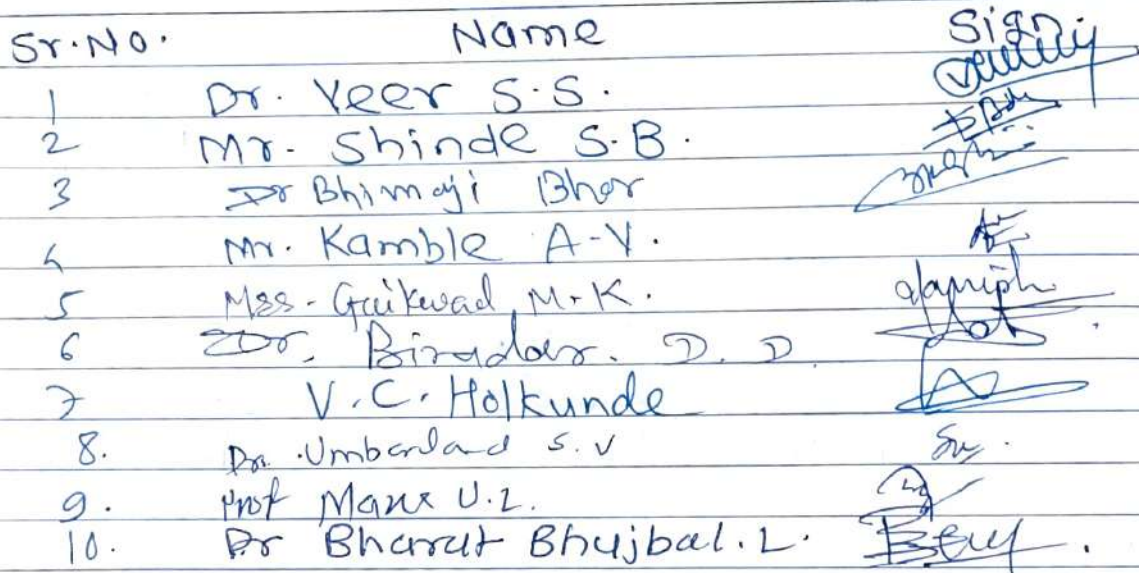 Sr.No. Name Sign
1 Dr. Veer S.S.
2 Mr. Shinde S.B.
3 Dr Bhimaji Bhor
4 Mr. Kamble A.V.
5 Mss. Gaikwad M.K.
6 Dr. Biradar. D. D
7 V.C. Holkunde
8. Dr. S.V
9. Prof Mane U.L.
10. Dr Bharat Bhujbal.L.